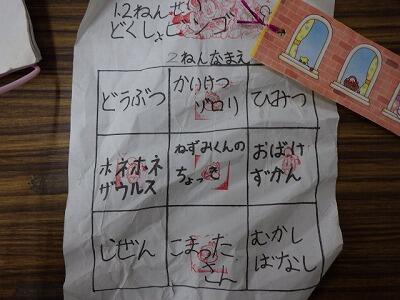 1.2ねんせい
どくしょビンゴ
2ねんなまえ
どうぶつ
かいけつ
ゾロリ
ひみつ
ホネホネ
ザウルス
ねずみくんの
チョッキ
おばけ
ずかん
しぜん
こまった
さん
むかし
ばなし